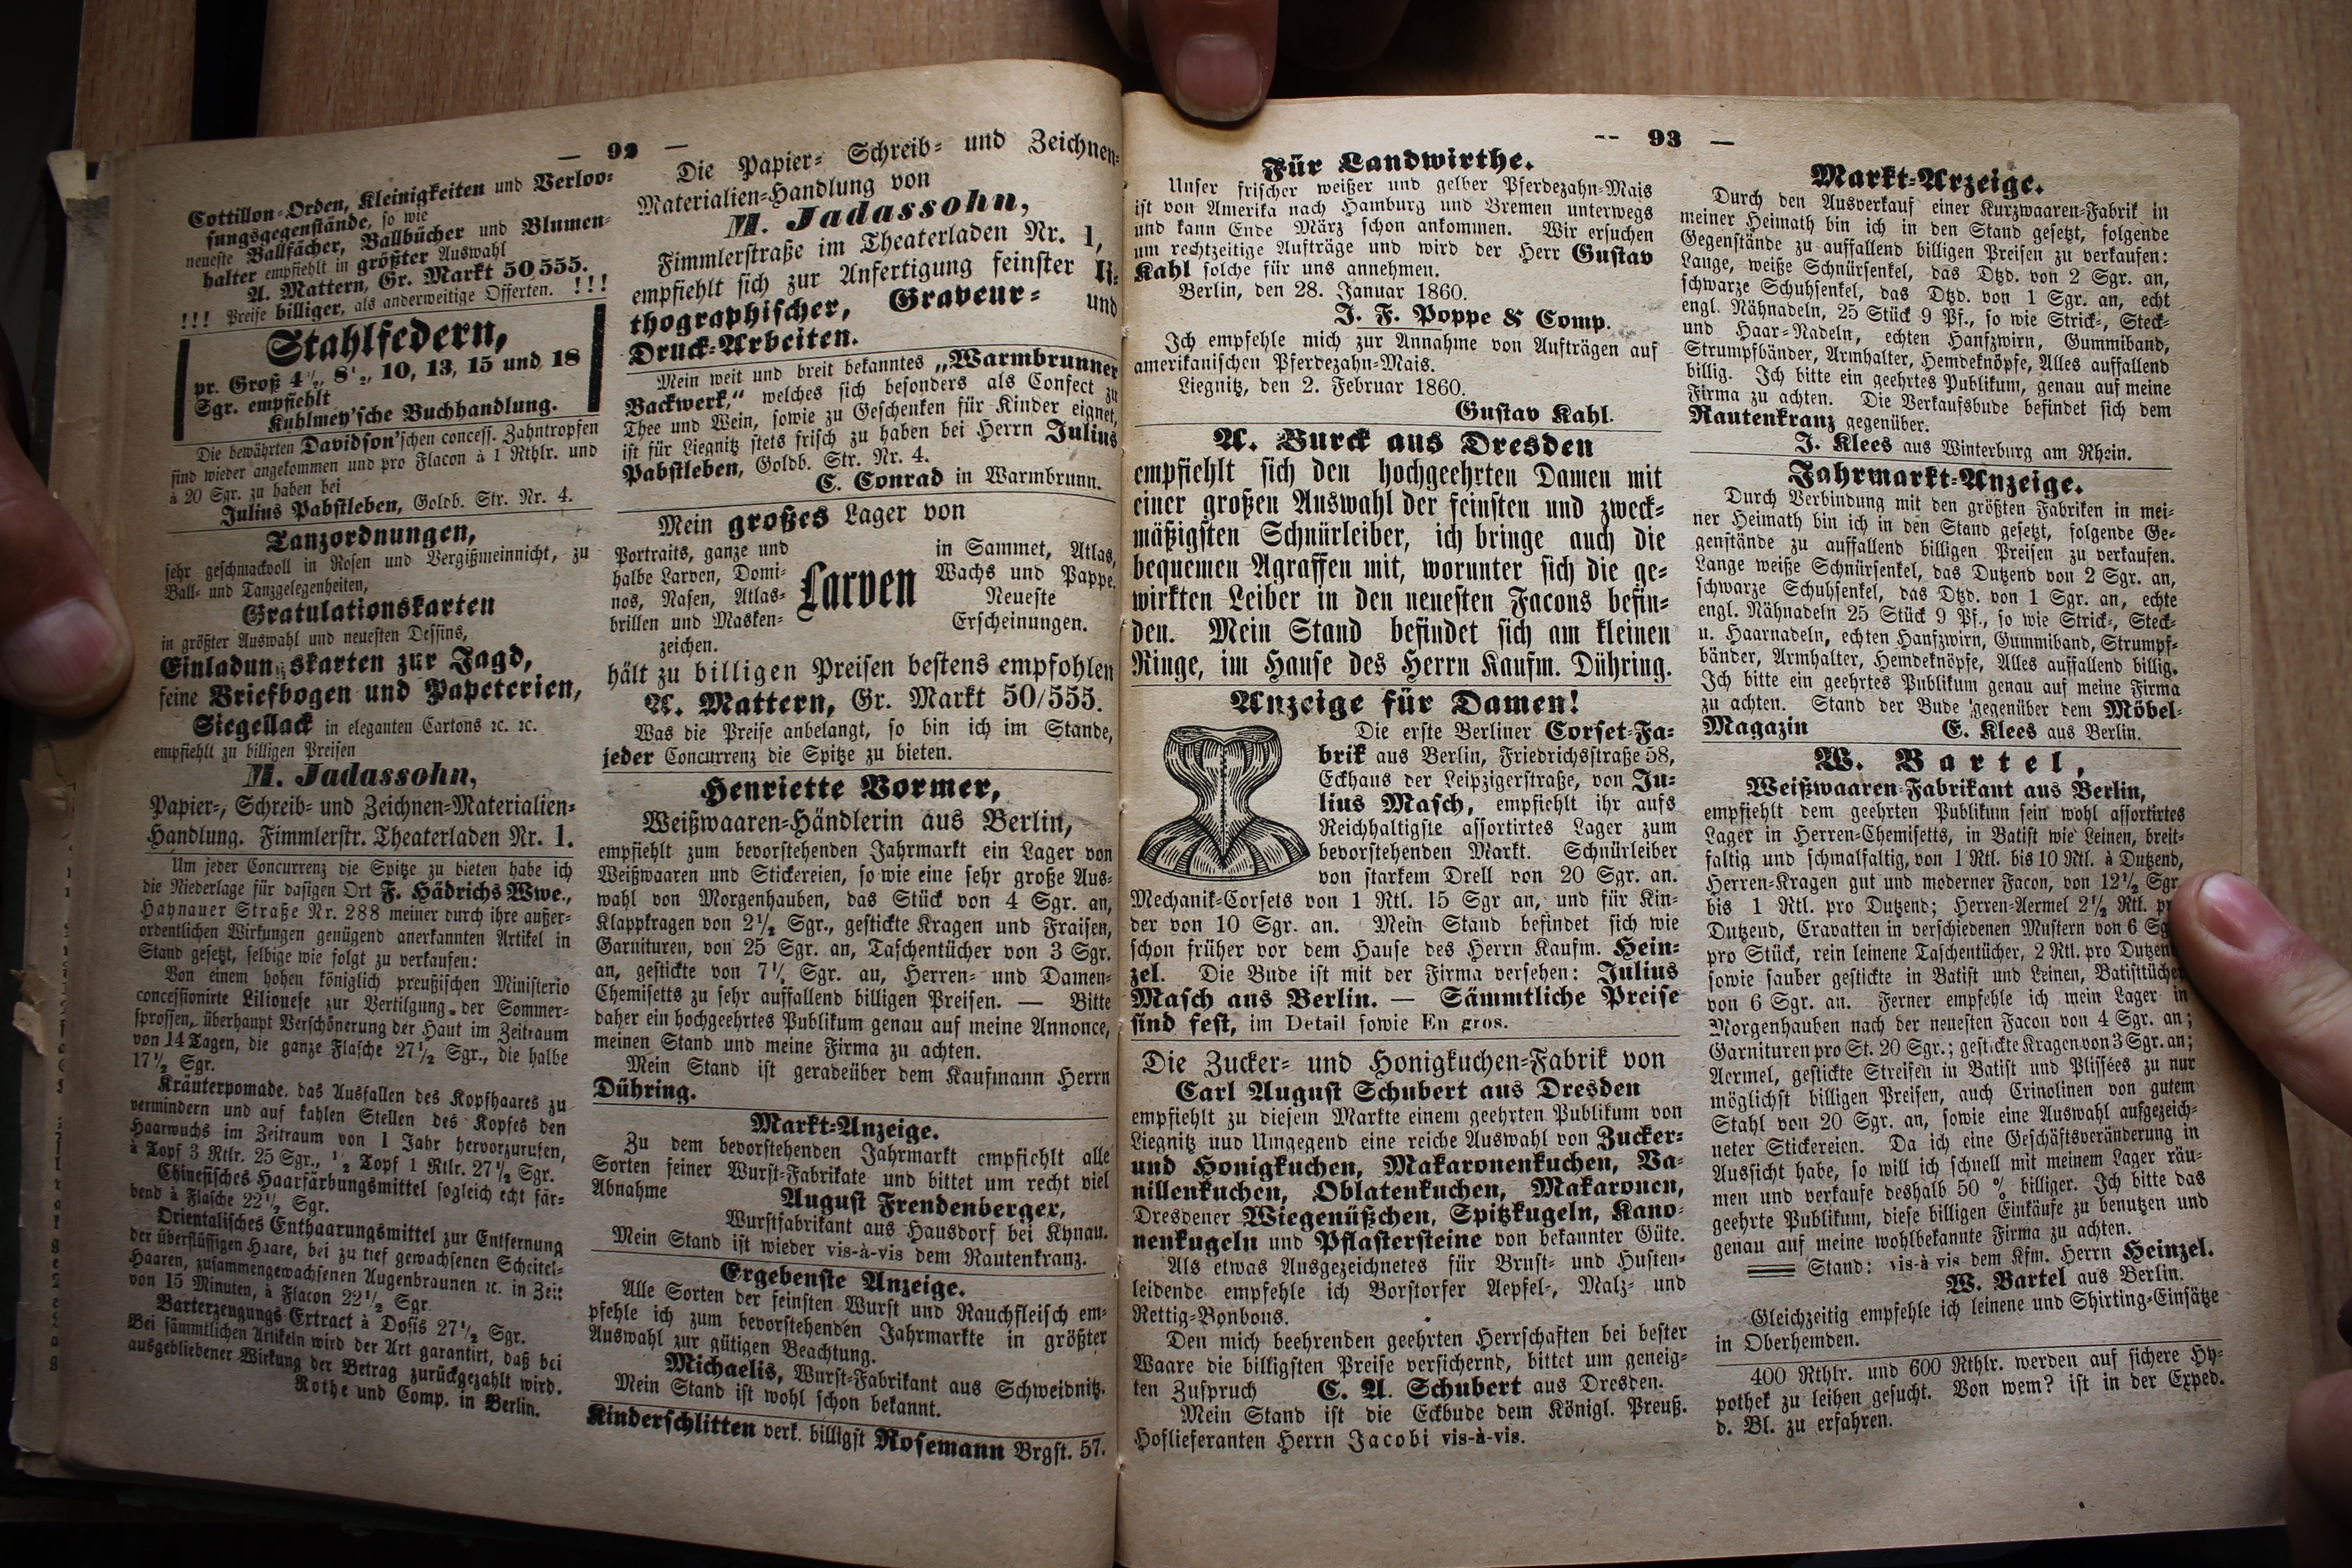 — 92 —
Cottillon-Orden, Kleinigkeiten und Verloo-
sungsgegenstände, so wie
neueste Ballfächer, Ballbücher und Blumen-
halter empfiehlt in größter Auswahl
A. Mattern, Gr. Markt 50/555.
!!! Preise billiger, als anderweitige Offerten. !!!
Stahlfedern,
pr. Groß 4½, 8½, 10, 13, 15 und 18
Sgr. empfiehlt
Kuhlmey'sche Buchhandlung.
Die bewährten Davidson'schen concess. Zahntropfen
sind wieder angekommen und pro Flacon à 1 Rthlr. und
à 20 Sgr. zu haben bei
Julius Pabstleben, Goldb. Str. Nr. 4.
Tanzordnungen,
sehr geschmackvoll in Rosen und Vergißmeinnicht, zu
Ball- und Tanzgelegenheiten,
Gratulationskarten
in größter Auswahl und neuesten Dessins,
Einladungskarten zur Jagd,
feine Briefbogen und Papeterien,
Siegellack in eleganten Cartons ꝛc. ꝛc.
empfiehlt zu billigen Preisen
M. Jadassohn,
Papier-, Schreib- und Zeichnen-Materialien-
Handlung. Fimmlerstr. Theaterladen Nr. 1.
Um jeder Concurrenz die Spitze zu bieten habe ich
die Niederlage für dasigen Ort F. Hädrichs Wwe.,
Haynauer Straße Nr. 288 meiner durch ihre außer-
ordentlichen Wirkungen genügend anerkannten Artikel in
Stand gesetzt, selbige wie folgt zu verkaufen:
Von einem hohen königlich preußischen Ministerio
concessionirte Lilionese zur Vertilgung der Sommer-
sprossen, überhaupt Verschönerung der Haut im Zeitraum
von 14 Tagen, die ganze Flasche 27½ Sgr., die halbe
17½ Sgr.
Kräuterpomade, das Ausfallen des Kopfhaares zu
vermindern und auf kahlen Stellen des Kopfes den
Haarwuchs im Zeitraum von 1 Jahr hervorzurufen,
à Topf 3 Rtlr. 25 Sgr., ½ Topf 1 Rtlr. 27½ Sgr.
Chinesisches Haarfärbungsmittel sogleich echt fär-
bend à Flasche 22½ Sgr.
Orientalisches Enthaarungsmittel zur Entfernung
der überflüssigen Haare, bei zu tief gewachsenen Scheitel-
Haaren, zusammengewachsenen Augenbraunen ꝛc. in Zeit
von 15 Minuten, à Flacon 22½ Sgr.
Barterzeugungs Extract à Dosis 27½ Sgr.
Bei sämmtlichen Artikeln wird der Art garantirt, daß bei
ausgebliebener Wirkung der Betrag zurückgezahlt wird.
Rothe und Comp. in Berlin.
Die Papier- Schreib- und Zeichnen-
Materialien-Handlung von
M. Jadassohn,
Fimmlerstraße im Theaterladen Nr. 1,
empfiehlt sich zur Anfertigung feinster li-
thographischer, Graveur- und
Druck-Arbeiten.
Mein weit und breit bekanntes „Warmbrunner
Backwerk," welches sich besonders als Confect zu
Thee und Wein, sowie zu Geschenken für Kinder eignet,
ist für Liegnitz stets frisch zu haben bei Herrn Julius
Pabstleben, Goldb. Str. Nr. 4.
C. Conrad in Warmbrunn.
Mein großes Lager von
Portraits, ganze und
halbe Larven, Domi-
nos, Nasen, Atlas-
brillen und Masken-
zeichen.
Larven
in Sammet, Atlas,
Wachs und Pappe.
Neueste
Erscheinungen.
hält zu billigen Preisen bestens empfohlen
A. Mattern, Gr. Markt 50/555.
Was die Preise anbelangt, so bin ich im Stande,
jeder Concurrenz die Spitze zu bieten.
Henriette Vormer,
Weißwaaren-Händlerin aus Berlin,
empfiehlt zum bevorstehenden Jahrmarkt ein Lager von
Weißwaaren und Stickereien, so wie eine sehr große Aus-
wahl von Morgenhauben, das Stück von 4 Sgr. an,
Klappkragen von 2½ Sgr., gestickte Kragen und Fraisen,
Garnituren, von 25 Sgr. an, Taschentücher von 3 Sgr.
an, gestickte von 7½ Sgr. au, Herren- und Damen-
Chemisetts zu sehr auffallend billigen Preisen. — Bitte
daher ein hochgeehrtes Publikum genau auf meine Annonce,
meinen Stand und meine Firma zu achten.
Mein Stand ist geradeüber dem Kaufmann Herrn
Dühring.
Markt-Anzeige.
Zu dem bevorstehenden Jahrmarkt empfiehlt alle
Sorten feiner Wurst-Fabrikate und bittet um recht viel
Abnahme August Frendenberger,
Wurstfabrikant aus Hausdorf bei Kynau.
Mein Stand ist wieder vis-à-vis dem Rautenkranz.
Ergebenste Anzeige.
Alle Sorten der feinsten Wurst und Rauchfleisch em-
pfehle ich zum bevorstehenden Jahrmarkte in größter
Auswahl zur gütigen Beachtung.
Michaelis, Wurst-Fabrikant aus Schweidnitz.
Mein Stand ist wohl schon bekannt.
Kinderschlitten verk. billigst Rosemann Brgst. 57.
— 93 —
Für Landwirthe.
Unser frischer weißer und gelber Pferdezahn-Mais
ist von Amerika nach Hamburg und Bremen unterwegs
und kann Ende März schon ankommen. Wir ersuchen
um rechtzeitige Aufträge und wird der Herr Gustav
Kahl solche für uns annehmen.
Berlin, den 28. Januar 1860.
J. F. Poppe & Comp.
Ich empfehle mich zur Annahme von Aufträgen auf
amerikanischen Pferdezahn-Mais.
Liegnitz, den 2. Februar 1860.
Gustav Kahl.
A. Burck aus Dresden
empfiehlt sich den hochgeehrten Damen mit
einer großen Auswahl der feinsten und zweck-
mäßigsten Schnürleiber, ich bringe auch die
bequemen Agraffen mit, worunter sich die ge-
wirkten Leiber in den neuesten Facons befin-
den. Mein Stand befindet sich am kleinen
Ringe, im Hause des Herrn Kaufm. Dühring.
Anzeige für Damen!
Die erste Berliner Corset-Fa-
brik aus Berlin, Friedrichsstraße 58,
Eckhaus der Leipzigerstraße, von Ju-
lius Masch, empfiehlt ihr aufs
Reichhaltigste assortirtes Lager zum
bevorstehenden Markt. Schnürleiber
von starkem Drell von 20 Sgr. an.
Mechanik-Corsets von 1 Rtl. 15 Sgr an, und für Kin-
der von 10 Sgr. an. Mein Stand befindet sich wie
schon früher vor dem Hause des Herrn Kaufm. Hein-
zel. Die Bude ist mit der Firma versehen: Julius
Masch aus Berlin. — Sämmtliche Preise
sind fest, im Detail sowie En gros.
Die Zucker- und Honigkuchen-Fabrik von
Carl August Schubert aus Dresden
empfiehlt zu diesem Markte einem geehrten Publikum von
Liegnitz uud Umgegend eine reiche Auswahl von Zucker-
und Honigkuchen, Makaronenkuchen, Va-
nillenkuchen, Oblatenkuchen, Makaronen,
Dresdener Wiegenüßchen, Spitzkugeln, Kano-
nenkugeln und Pflastersteine von bekannter Güte.
Als etwas Ausgezeichnetes für Brust- und Husten-
leidende empfehle ich Borstorfer Aepfel-, Malz- und
Rettig-Bonbons.
Den mich beehrenden geehrten Herrschaften bei bester
Waare die billigsten Preise versichernd, bittet um geneig-
ten Zuspruch C. A. Schubert aus Dresden.
Mein Stand ist die Eckbude dem Königl. Preuß.
Hoflieferanten Herrn Jacobi vis-à-vis.
Markt-Arzeige.
Durch den Ausverkauf einer Kurzwaaren-Fabrik in
meiner Heimath bin ich in den Stand gesetzt, folgende
Gegenstände zu auffallend billigen Preisen zu verkaufen:
Lange, weiße Schnürsenkel, das Dtzd. von 2 Sgr. an,
schwarze Schuhsenkel, das Dtzd. von 1 Sgr. an, echt
engl. Nähnadeln, 25 Stück 9 Pf., so wie Strick-, Steck-
und Haar-Nadeln, echten Hanfzwirn, Gummiband,
Strumpfbänder, Armhalter, Hemdeknöpfe, Alles auffallend
billig. Ich bitte ein geehrtes Publikum, genau auf meine
Firma zu achten. Die Verkaufsbude befindet sich dem
Rautenkranz gegenüber.
J. Klees aus Winterburg am Rhein.
Jahrmarkt-Anzeige.
Durch Verbindung mit den größten Fabriken in mei-
ner Heimath bin ich in den Stand gesetzt, folgende Ge-
genstände zu auffallend billigen Preisen zu verkaufen.
Lange weiße Schnürsenkel, das Dutzend von 2 Sgr. an,
schwarze Schuhsenkel, das Dtzd. von 1 Sgr. an, echte
engl. Nähnadeln 25 Stück 9 Pf., so wie Strick-, Steck-
u. Haarnadeln, echten Hanfzwirn, Gummiband, Strumpf-
bänder, Armhalter, Hemdeknöpfe, Alles auffallend billig.
Ich bitte ein geehrtes Publikum genau auf meine Firma
zu achten. Stand der Bude gegenüber dem Möbel-
Magazin E. Klees aus Berlin.
W. Bartel,
Weißwaaren-Fabrikant aus Berlin,
empfiehlt dem geehrten Publikum sein wohl assortirtes
Lager in Herren-Chemisetts, in Batist wie Leinen, breit-
faltig und schmalfaltig, von 1 Rtl. bis 10 Rtl. à Dutzend,
Herren-Kragen gut und moderner Facon, von 12½ Sgr.
bis 1 Rtl. pro Dutzend; Herren-Aermel 2½ Rtl.
Dutzend, Cravatten in verschiedenen Mustern von 6
pro Stück, rein leinene Taschentücher, 2 Rtl. pro Dutzend
sowie sauber gestickte in Batist und Leinen, Batisttücher
von 6 Sgr. an. Ferner empfehle ich mein Lager in
Morgenhauben nach der neuesten Facon von 4 Sgr. an;
Garnituren pro St. 20 Sgr.; gestickte Kragen von 3 Sgr. an;
Aermel, gestickte Streifen in Batist und Plissées zu nur
möglichst billigen Preisen, auch Crinolinen von gutem
Stahl von 20 Sgr. an, sowie eine Auswahl aufgezeich-
neter Stickereien. Da ich eine Geschäftsveränderung in
Aussicht habe, so will ich schnell mit meinem Lager räu-
men und verkaufe deshalb 50 % billiger. Ich bitte das
geehrte Publikum, diese billigen Einkäufe zu benutzen und
genau auf meine wohlbekannte Firma zu achten.
Stand: vis-à-vis dem Kfm. Herrn Heinzel.
W. Bartel aus Berlin.
Gleichzeitig empfehle ich leinene und Shirting-Einsätze
in Oberhemden.
400 Rthlr. und 600 Rthlr. werden auf sichere Hy-
pothek zu leihen gesucht. Von wem? ist in der Exped.
d. Bl. zu erfahren.